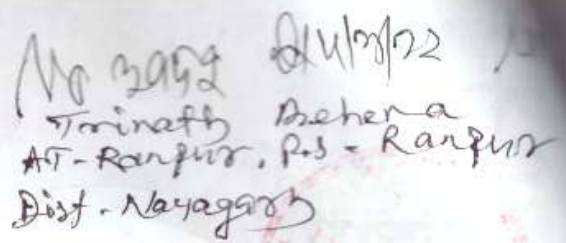 No
Trinath Behera
AT-Ranpur, P.S - Ranpur
Dist - Nayagarh